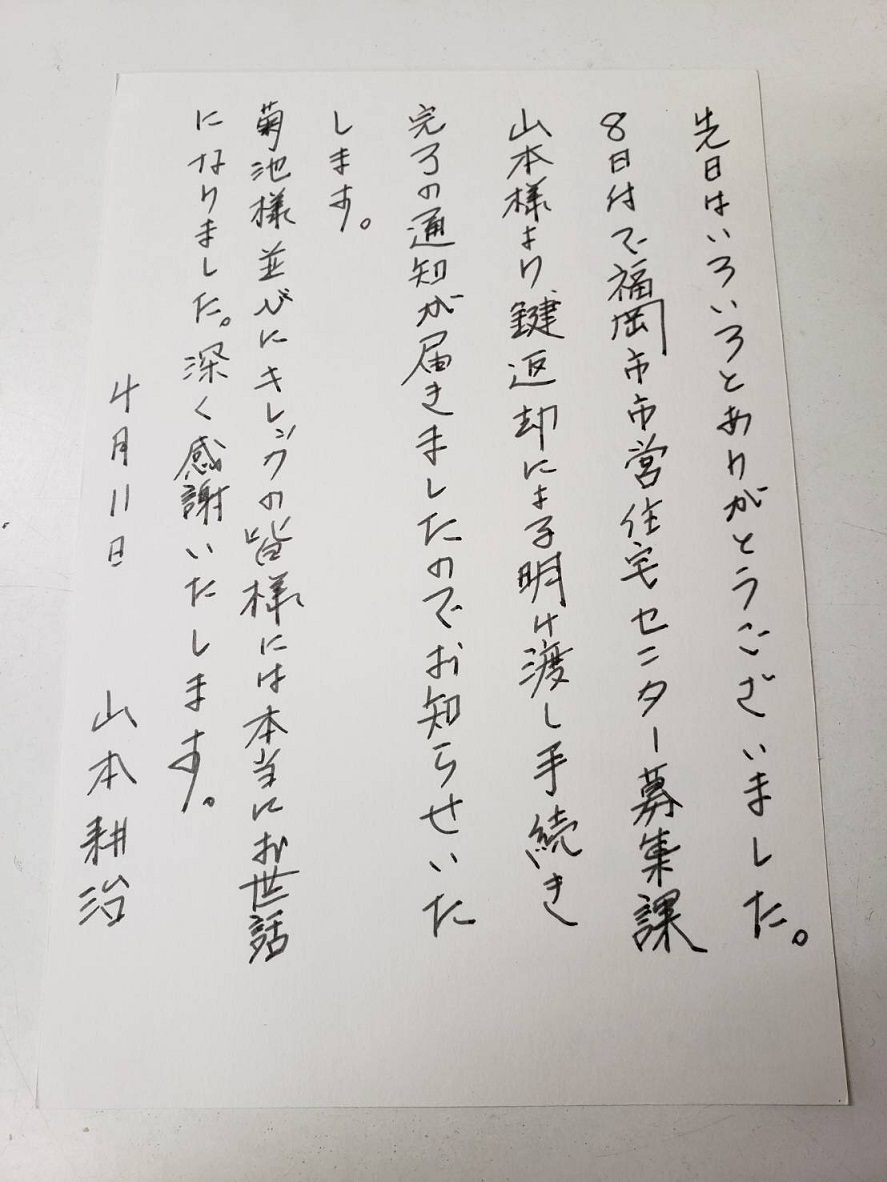 先日はいろいろとありがとうございました。
8日付で福岡市市営住宅センター募集課
山本様より鍵返却による明け渡し手続き
完了の通知が届きましたのでお知らせいた
します。
菊池様並びにキレングの皆様には本当にお世話
になりました。深く感謝いたします。
4月11日 山本耕治